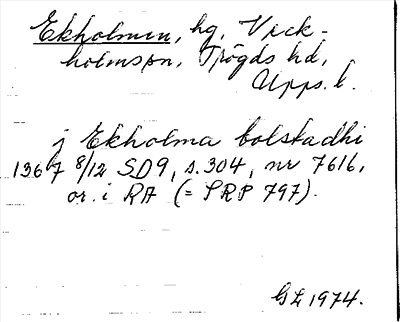 Ekholmen, hg, Veck-
holmssn, Trögds hd,
Upps. l.
j Ekholma bolstadhi
1367 8/12 SD9, s. 304, nr 7616,
or. i RA (= SRP 797).
GL 1974.